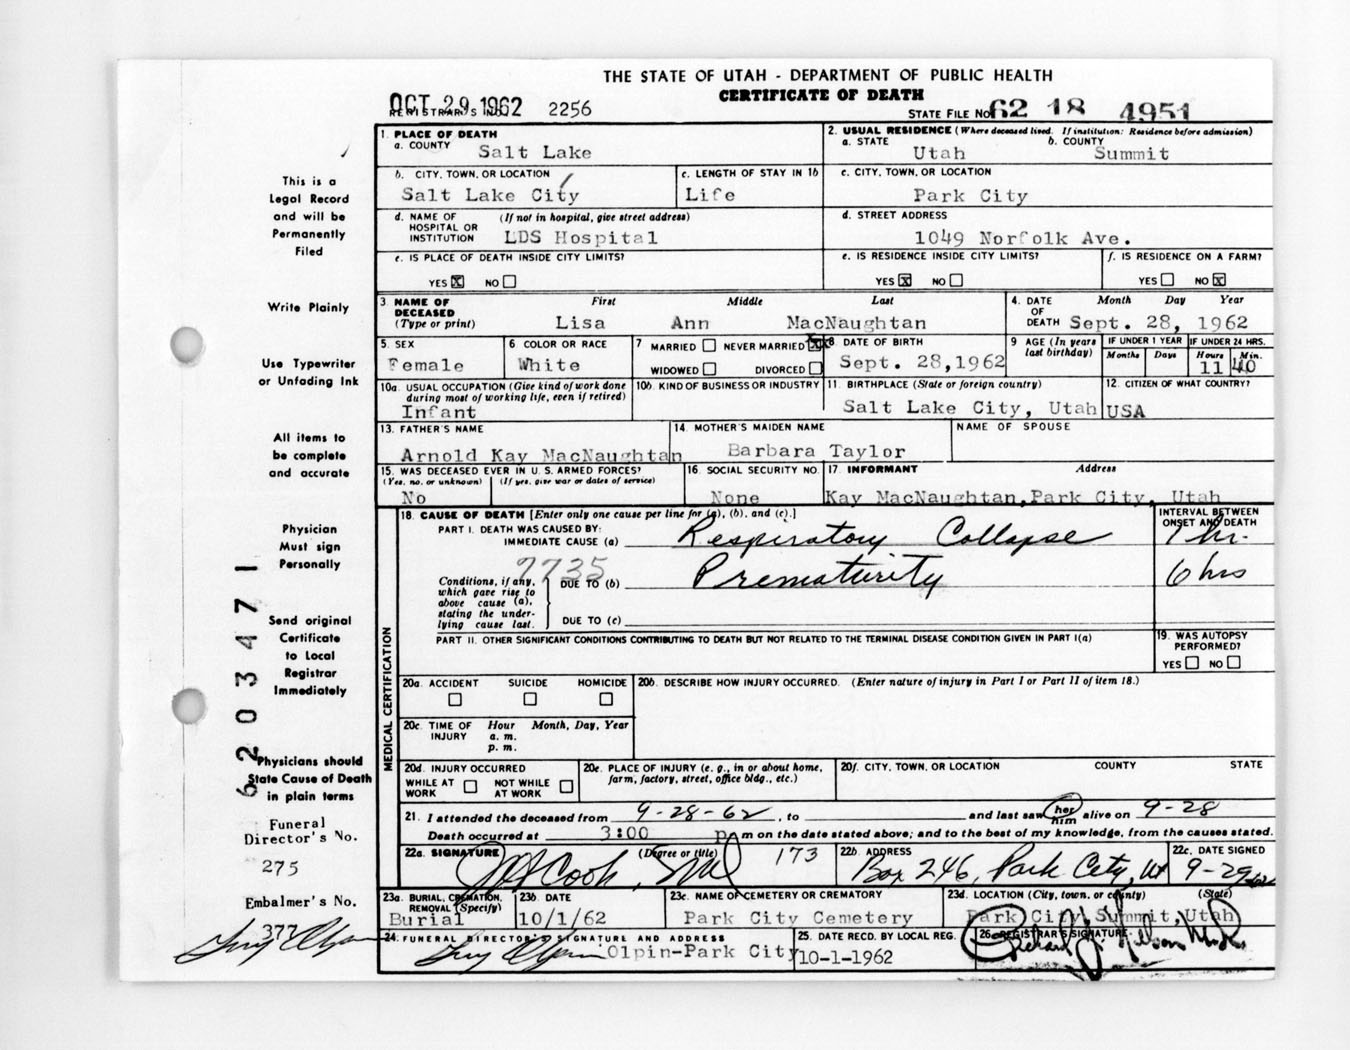 THE STATE OF UTAH - DEPARTMENT OF PUBLIC HEALTH
CERTIFICATE OF DEATH
OCT 29 1962 2256
REGISTRAR'S NO.
STATE FILE NO. 62 18 4951
1. PLACE OF DEATH
a. COUNTY Salt Lake
2. USUAL RESIDENCE (Where deceased lived. If institution: Residence before admission)
a. STATE Utah b. COUNTY Summit
b. CITY, TOWN, OR LOCATION Salt Lake City
c. LENGTH OF STAY IN 1b Life
c. CITY, TOWN, OR LOCATION Park City
d. NAME OF HOSPITAL OR INSTITUTION (If not in hospital, give street address) LDS Hospital
d. STREET ADDRESS 1049 Norfolk Ave.
e. IS PLACE OF DEATH INSIDE CITY LIMITS?
YES X NO
e. IS RESIDENCE INSIDE CITY LIMITS?
YES X NO
f. IS RESIDENCE ON A FARM?
YES NO X
3. NAME OF DECEASED (Type or print) First Middle Last
Lisa Ann MacNaughtan
4. DATE OF DEATH Month Day Year
Sept. 28, 1962
5. SEX Female
6 COLOR OR RACE White
7 MARRIED NEVER MARRIED X
WIDOWED DIVORCED
8. DATE OF BIRTH Sept. 28,1962
9 AGE (In years last birthday)
IF UNDER 1 YEAR Months Days
IF UNDER 24 HRS. Hours 11 Min. 40
10a. USUAL OCCUPATION (Give kind of work done during most of working life, even if retired) Infant
10b. KIND OF BUSINESS OR INDUSTRY
11. BIRTHPLACE (State or foreign country) Salt Lake City, Utah
12. CITIZEN OF WHAT COUNTRY? USA
13. FATHER'S NAME Arnold Kay MacNaughtan
14. MOTHER'S MAIDEN NAME Barbara Taylor
NAME OF SPOUSE
15. WAS DECEASED EVER IN U. S. ARMED FORCES?
(Yes, no. or unknown) (If yes, give war or dates of service)
No
16. SOCIAL SECURITY NO. None
17. INFORMANT Address
Kay MacNaughtan,Park City, Utah
18. CAUSE OF DEATH [Enter only one cause per line for (a), (b), and (c).]
INTERVAL BETWEEN ONSET AND DEATH
PART I. DEATH WAS CAUSED BY:
IMMEDIATE CAUSE (a) Respiratory Collapse 1 hr.
7735
Conditions, if any, which gave rise to above cause (a), stating the under-lying cause last.
DUE TO (b) Prematurity 6 hrs
DUE TO (c)
PART II. OTHER SIGNIFICANT CONDITIONS CONTRIBUTING TO DEATH BUT NOT RELATED TO THE TERMINAL DISEASE CONDITION GIVEN IN PART I(a)
19. WAS AUTOPSY PERFORMED?
YES NO
MEDICAL CERTIFICATION
20a. ACCIDENT SUICIDE HOMICIDE
20b. DESCRIBE HOW INJURY OCCURRED. (Enter nature of injury in Part I or Part II of item 18.)
20c. TIME OF INJURY Hour Month, Day, Year
a. m.
p. m.
20d. INJURY OCCURRED
WHILE AT WORK NOT WHILE AT WORK
20e. PLACE OF INJURY (e. g., in or about home, farm, factory, street, office bldg., etc.)
20f. CITY, TOWN, OR LOCATION COUNTY STATE
21. I attended the deceased from 9-28-62, to and last saw her him alive on 9-28
Death occurred at 3:00 p m on the date stated above; and to the best of my knowledge, from the causes stated.
22a. SIGNATURE (Degree or title) Cook, MD 173
22b. ADDRESS Box 246, Park City, Ut
22c. DATE SIGNED 9-29-62
23a. BURIAL, CREMATION, REMOVAL (Specify) Burial
23b. DATE 10/1/62
23c. NAME OF CEMETERY OR CREMATORY Park City Cemetery
23d. LOCATION (City, town, or county) (State)
Park City, Summit, Utah
24. FUNERAL DIRECTOR'S SIGNATURE AND ADDRESS
Olpin-Park City
25. DATE RECD. BY LOCAL REG. 10-1-1962
26. REGISTRAR'S SIGNATURE
This is a
Legal Record
and will be
Permanently
Filed
Write Plainly
Use Typewriter
or Unfading Ink
All items to
be complete
and accurate
Physician
Must sign
Personally
Send original
Certificate
to Local
Registrar
Immediately
Physicians should
State Cause of Death
in plain terms
62 203471
Funeral
Director's No.
275
Embalmer's No.
377